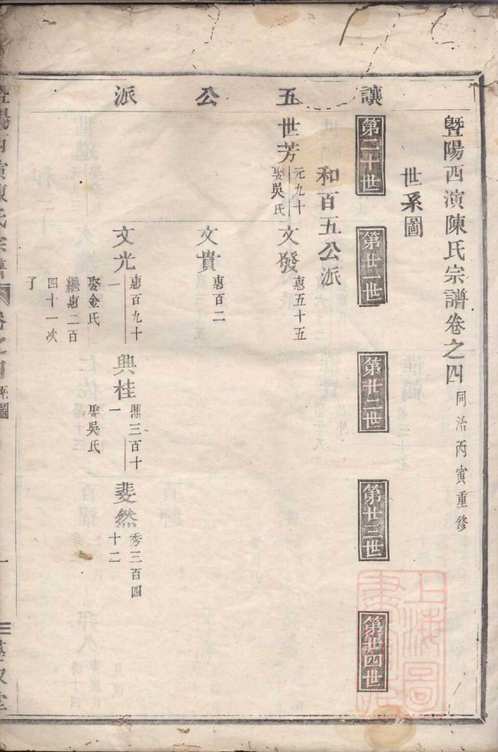 暨陽西演陳氏宗譜卷之四 同治丙寅重修
世系圖
讓五公派
第二十世
第廿一世
第廿二世
第廿三世
第廿四世
和百五公派
世芳 元九十 娶吳氏
文發 惠五十五
文貴 惠百二
文光 惠百九十一 娶金氏
惠二百四十一次了
興桂 三百十一 娶吳氏
斐然 秀三百四十二